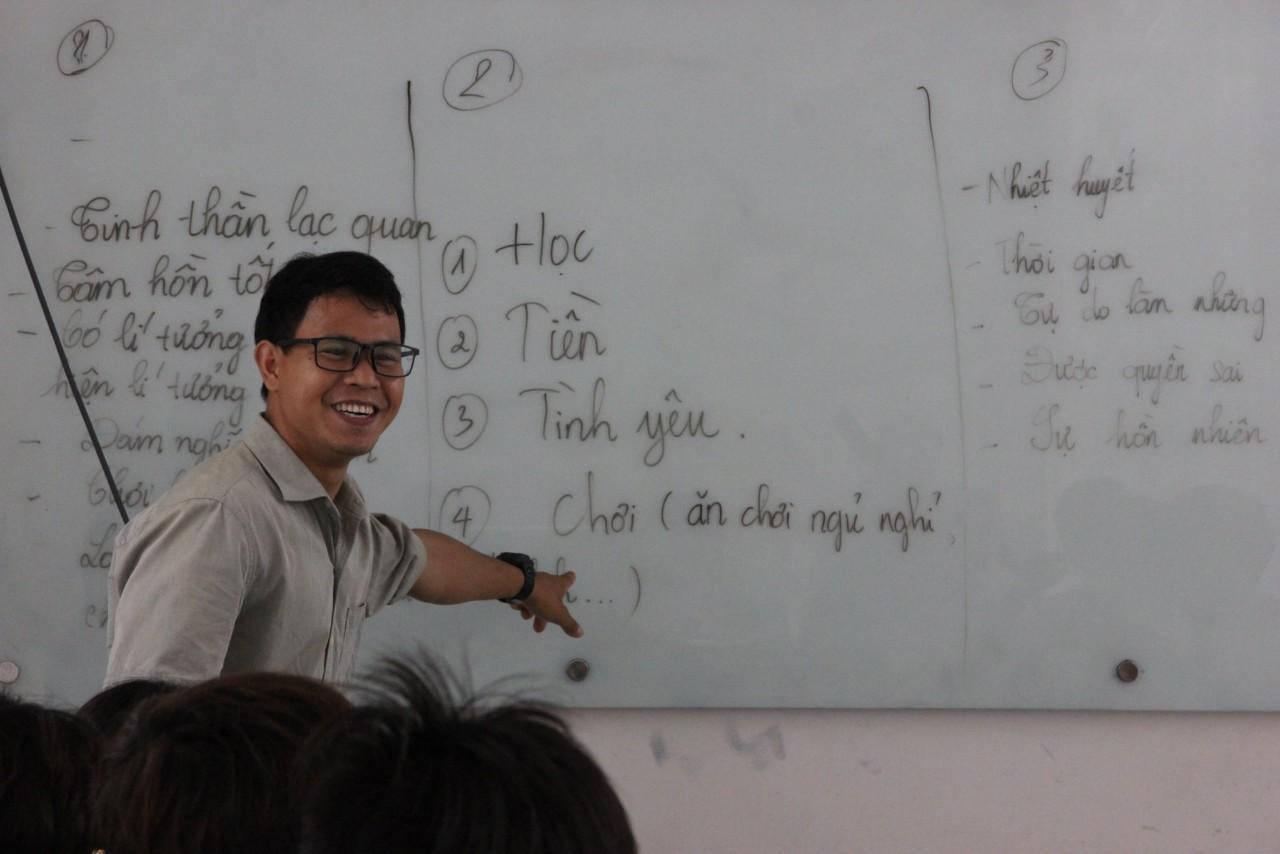 1
- Tinh thần lạc quan
- Tâm hồn tốt
- Có lí tưởng
hiện lí tưởng
- Dám nghĩ
- Chơi
2
① Học
② Tiền
③ Tình yêu.
④ Chơi (ăn chơi ngủ nghỉ,
...)
3
- Nhiệt huyết
- Thời gian
- Tự do làm những
- Được quyền sai
- Sự hồn nhiên